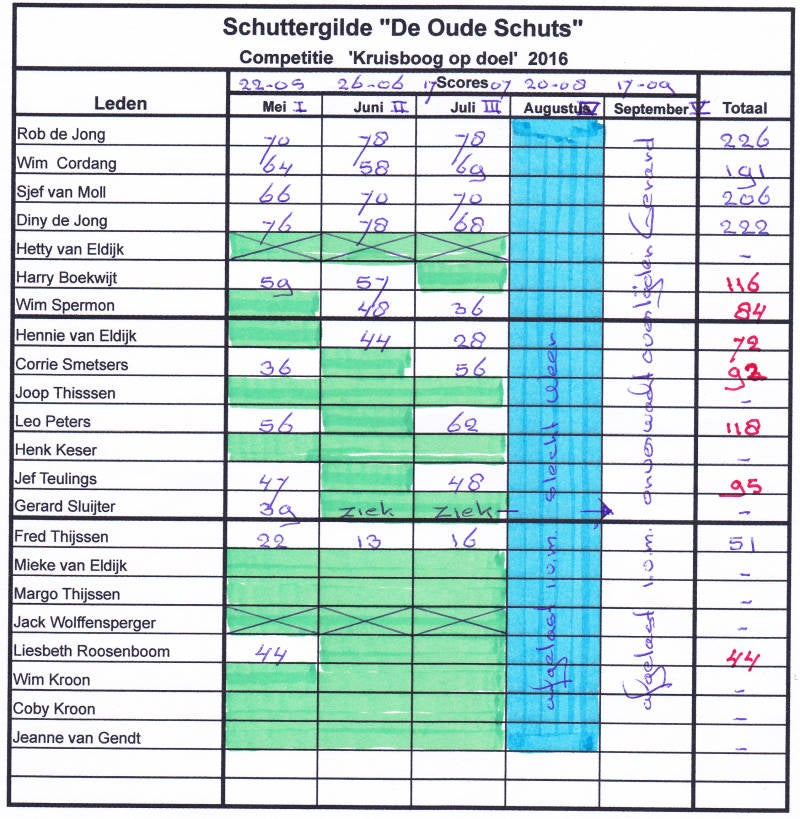 Schuttergilde "De Oude Schuts"
Competitie 'Kruisboog op doel' 2016
Leden 22-05 26-06 17 Scores 07 20-08 17-09
Mei I Juni II Juli III Augustus IV September V Totaal
Rob de Jong 70 78 78 226
Wim Cordang 64 58 69 191
Sjef van Moll 66 70 70 206
Diny de Jong 76 78 68 222
Hetty van Eldijk -
Harry Boekwijt 59 57 116
Wim Spermon 48 36 84
Hennie van Eldijk 44 28 72
Corrie Smetsers 36 56 92
Joop Thisssen -
Leo Peters 56 62 118
Henk Keser -
Jef Teulings 47 48 95
Gerard Sluijter 39 ziek ziek -
Fred Thijssen 22 13 16 51
Mieke van Eldijk -
Margo Thijssen -
Jack Wolffensperger -
Liesbeth Roosenboom 44 44
Wim Kroon -
Coby Kroon -
Jeanne van Gendt -
afgelast i.v.m. slecht weer
afgelast i.v.m. onverwacht overlijden Gerard